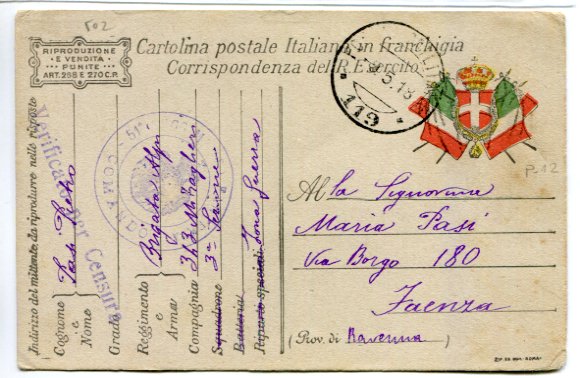 502
RIPRODUZIONE
E VENDITA
PUNITE
ART. 258 E 270 C.P.
Cartolina postale Italiana in franchigia
Corrispondenza del R. Esercito
119
P-12
Alla Signorina
Maria Pasi
Via Borgo 180
Faenza
(Prov. di Ravenna)
Indirizzo del mittente da riprodurre nelle risposte
Cognome e Nome Pasi Pietro
Grado
Reggimento e Arma Brigata Alpi
Compagnia 343 Mitraglieri
Squadrone 3ª Sezione
Batteria
Riparto speciali Zona Guerra
Verificato per Censura